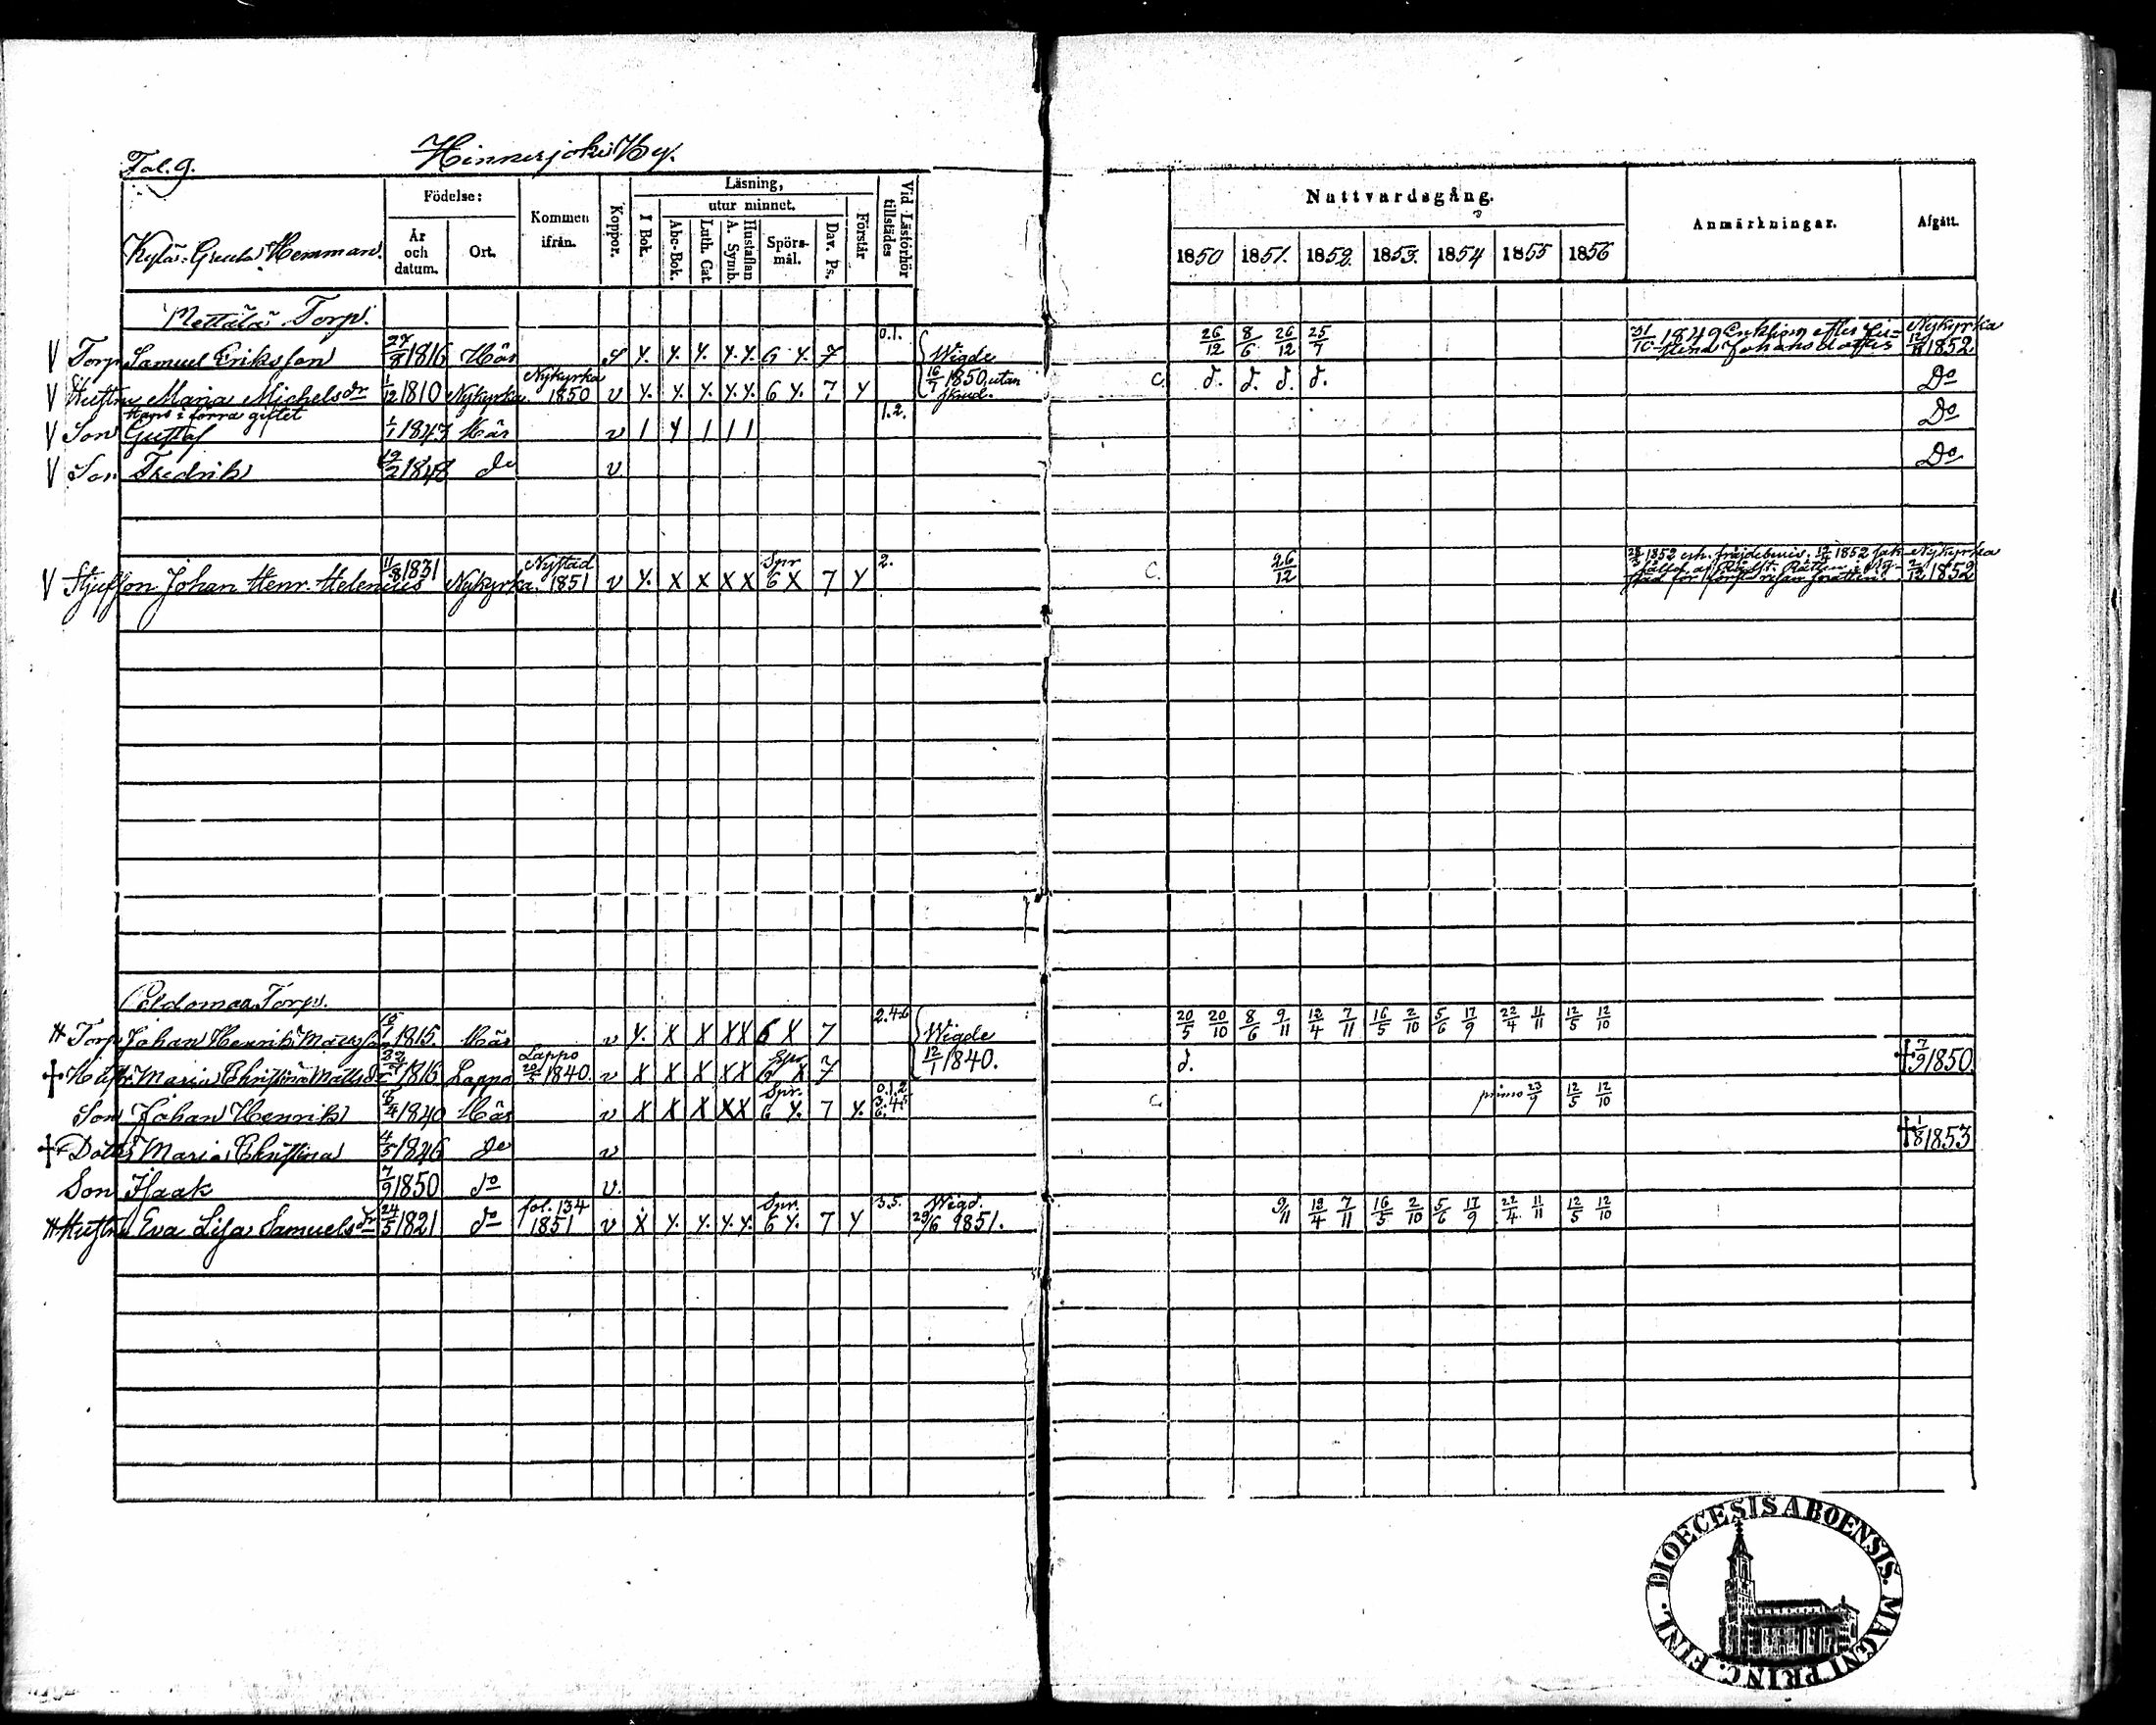 Fol. 9.
Hinnerjoki By.
Kylä-Greula Hemman.
Födelse:
År och datum.
Ort.
Kommen ifrån.
Koppor.
Läsning,
I Bok.
utur minnet.
Abc-Bok.
Luth. Cat.
Hustaflan A. Symb.
Spörs-mål.
Dav. Ps.
Förstår
Vid Läsförhör tillstädes
Nattvardsgång.
1850 1851. 1852. 1853. 1854 1855 1856
Anmärkningar.
Afgått.
Mettälä Torp.
V Torp. Samuel Eriksson 27/8 1816 Här Y. Y. Y. Y. Y. 6 Y. 7 0.1. Wigde 26/12 8/6 26/12 25/7 31/10 1849 Enkling efter Johansdotter Nykyrka 1852
V Hustru Maria Michelsdr 1/12 1810 Nykyrka Nykyrka 1850 v Y. Y. Y. Y. Y. 6 Y. 7 Y 16/7 1850, utan C. d. d. d. d. Do
Hans i förra giftet
V Son Gustaf 1/1 1847 Här v 1 Y 1 1 1 1.2. Do
V Son Fredrik 19/2 1848 do v Do
V Stjufson Johan Henr. Helenius 11/8 1831 Nykyrka Nystad 1851 v Y. X X X X Spr 6 X 7 Y 2. C. 26/12 1852 erh. frejdebevis. 1852 Nykyrka 1852
Torp.
Torp. Johan Henrik 1815. Här v Y. X X X X 6 X 7 2.4.6 Wigde 20/5 20/10 8/6 9/11 12/4 7/11 16/5 2/10 5/6 17/9 22/4 11/11 12/5 12/10
† Hustr. Maria Christina Mattsd. 1816 Lappo Lappo 20/5 1840. v X X X X X Spr 6 X 7 12/1 1840. d. † 7/9 1850
Son Johan Henrik 8/4 1840 Här v X X X X X Spr. 6 Y. 7 Y. 0.1.2 3.4.5 6. C. primo 23/9 12/5 12/10
† Dotter Maria Christina 4/5 1846 do v † 1/8 1853
Son Isaak 7/9 1850 do v.
Hustru Eva Lisa Samuelsdr 24/5 1821 do fol. 134 1851 v X Y. Y. Y. Y. Spr. 6 Y. 7 Y 3.5. Wigd. 29/6 1851. 9/11 13/4 7/11 16/5 2/10 5/6 17/9 22/4 11/11 12/5 12/10
DIOECESIS ABOENSIS. MAGNI PRINC. FINL.